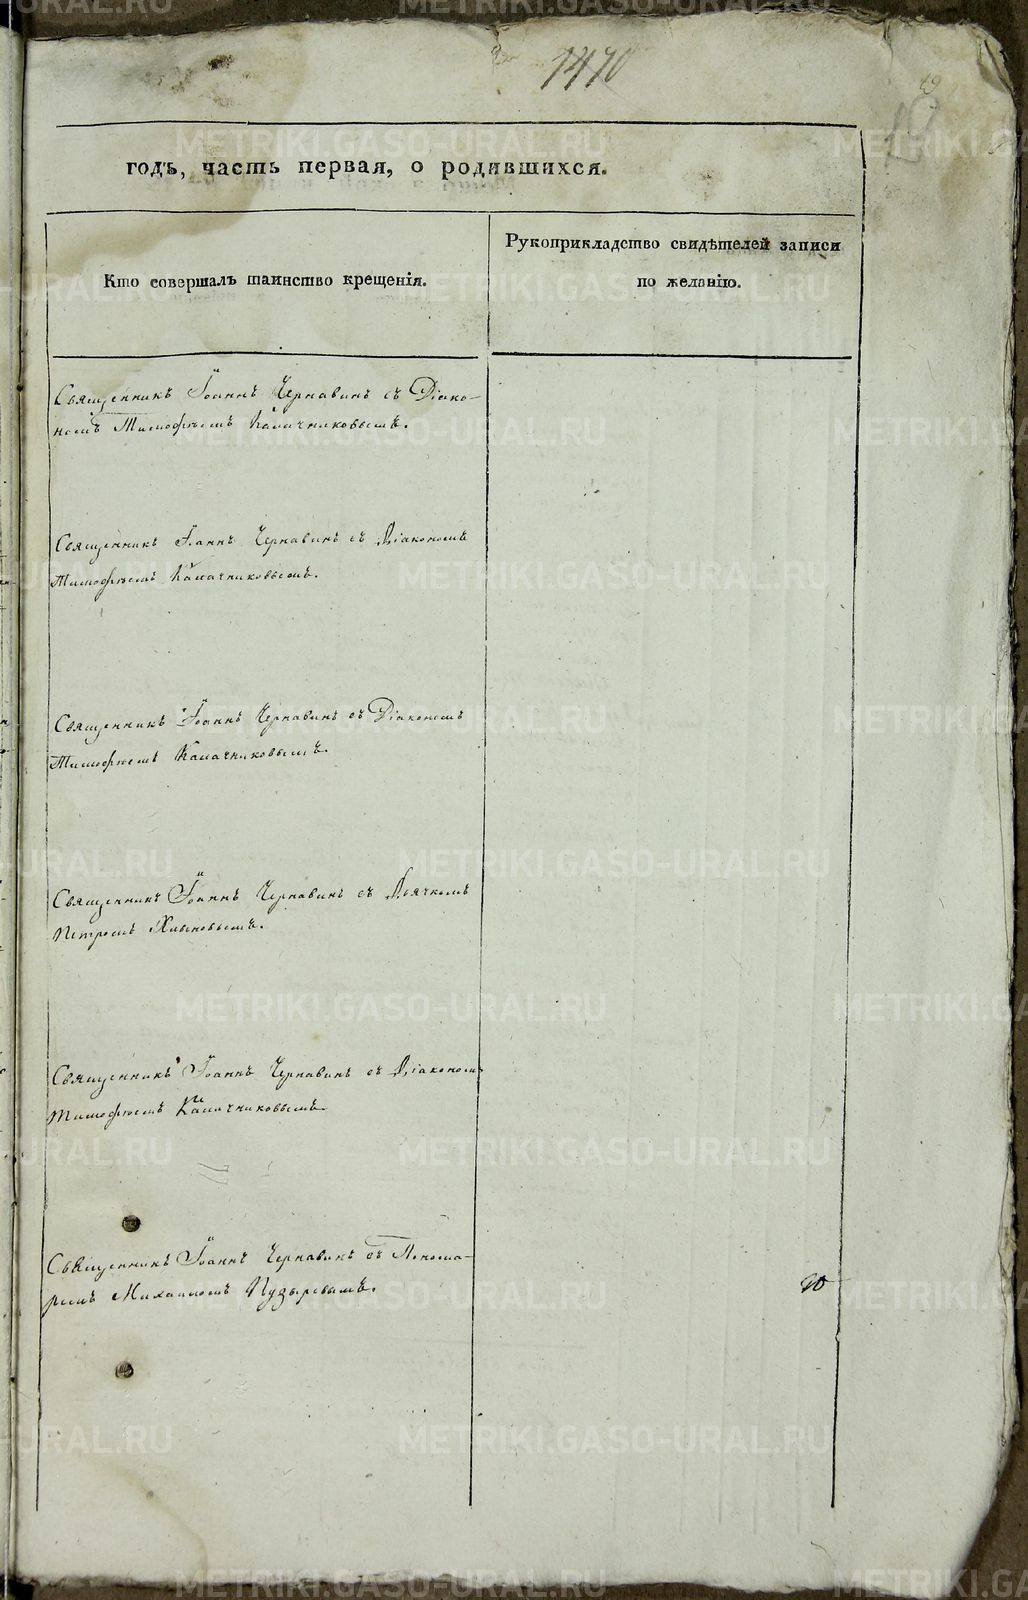 1470
19
годъ, часть первая, о родившихся.
Кто совершалъ таинство крещенія.
Рукоприкладство свидѣтелей записи
по желанію.
Священникъ Іоаннъ Чернавинъ съ Діако-
номъ Тимофѣемъ Калачниковымъ.
Священникъ Іоаннъ Чернавинъ съ Діакономъ
Тимофѣемъ Калачниковымъ.
Священникъ Іоаннъ Чернавинъ съ Діакономъ
Тимофѣемъ Калачниковымъ.
Священникъ Іоаннъ Чернавинъ съ Дьячкомъ
Петромъ Хлыновымъ.
Священникъ Іоаннъ Чернавинъ съ Діакономъ
Тимофѣемъ Калачниковымъ.
Священникъ Іоаннъ Чернавинъ съ Понома-
ремъ Михаиломъ Пузыревымъ.
METRIKI.GASO-URAL.RU